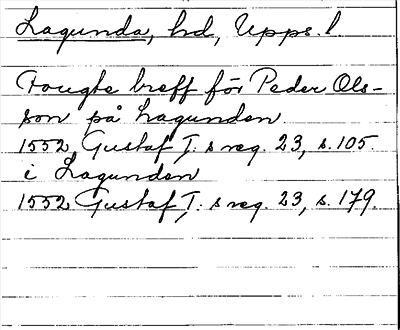 Lagunda, hd, Upps. l
Fougte breff för Peder Ols-
son på Lagunden
1552 Gustaf I:s reg. 23, s. 105.
i Lagunden
1552 Gustaf I:s reg. 23, s. 179.